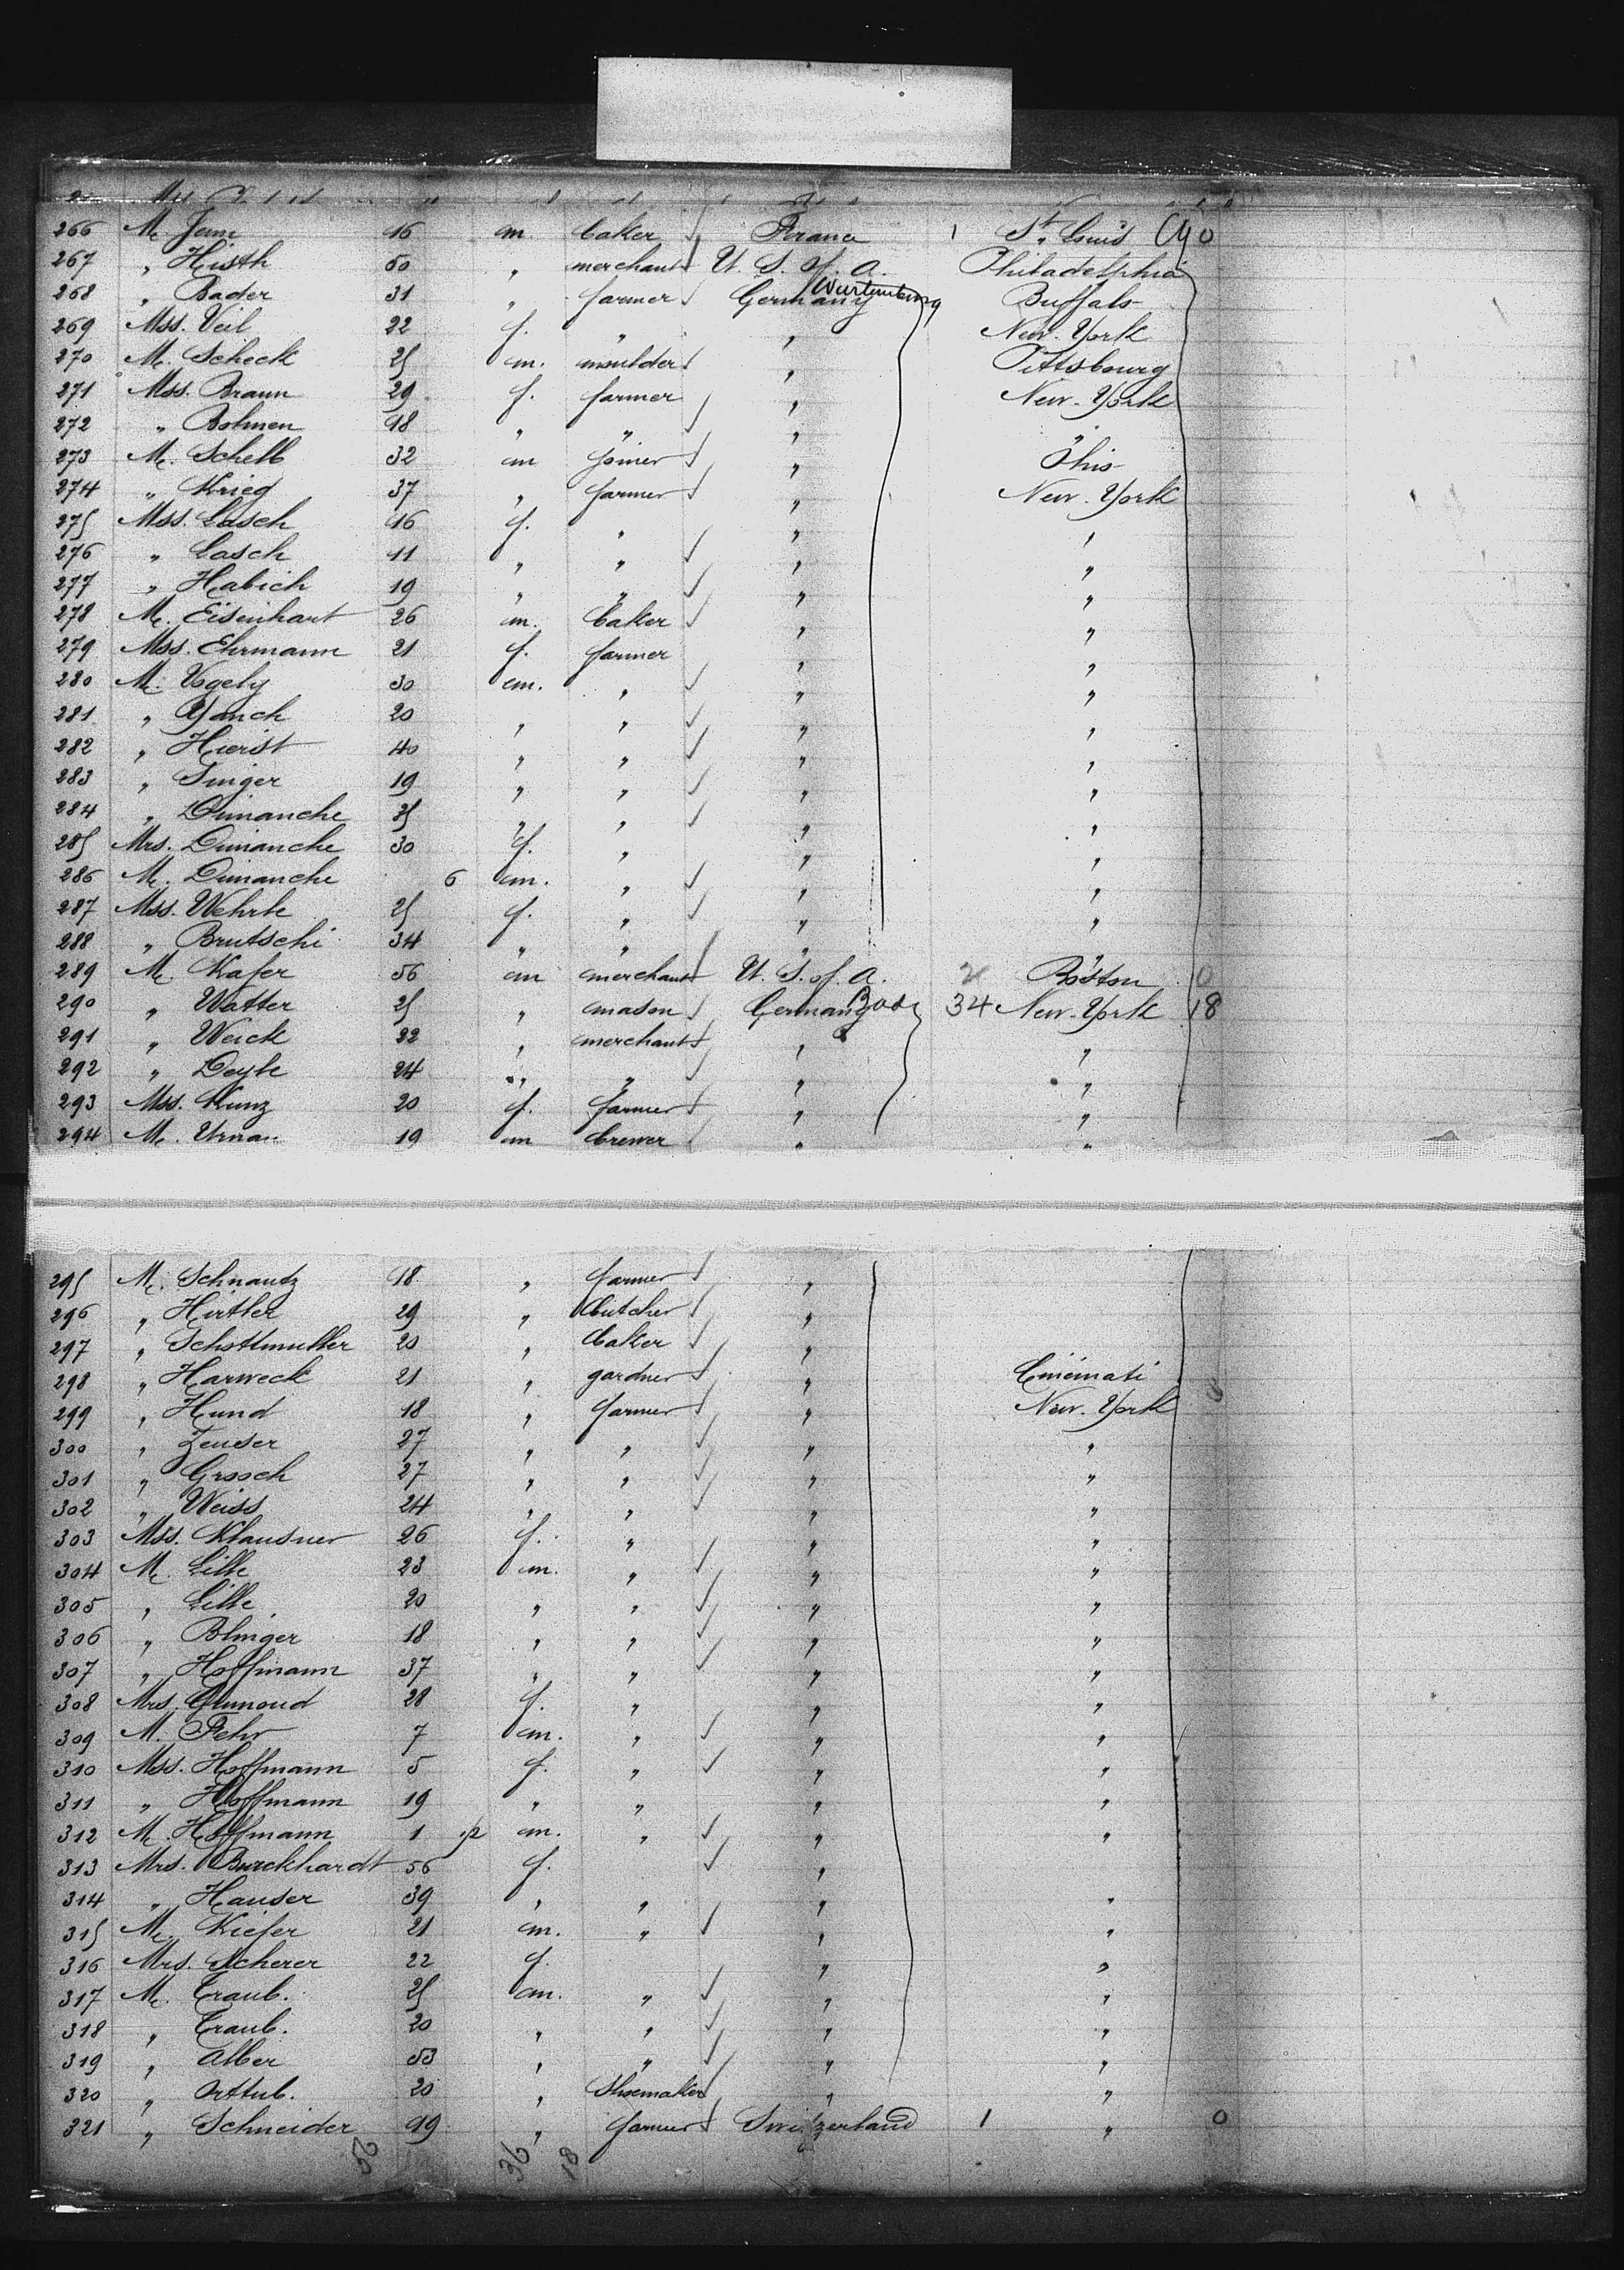 266 M. Jenn 16 m. baker France 1 St. Louis 0
267 " Histh 60 " merchant U. S. of. a. Philadelphia
268 " Bader 31 " farmer Germany Wurtemberg Buffalo
269 Mss. Veil 22 f. " " New-York
270 M. Scheck 25 m. moulder " Pittsbourg
271 Mss. Braun 29 f. farmer " New-York
272 " Bohnen 18 " " " "
273 M. Schelb 32 m joiner " Ohio
274 " Krieg 37 " farmer " New-York
275 Mss. Lasch 16 f. " " "
276 " Lasch 11 " " " "
277 " Habich 19 " " " "
278 M. Eisenhart 26 m. baker " "
279 Mss. Ehrmann 21 f. farmer " "
280 M. Vogely 30 m. " " "
281 " Yanch 20 " " " "
282 " Hierist 40 " " " "
283 " Singer 19 " " " "
284 " Dimanche 35 " " " "
285 Mrs. Dimanche 30 f. " " "
286 M. Dimanche 6 m. " " "
287 Mss. Wehrle 25 f. " " "
288 " Brutschi 34 " " " "
289 M. Kafer 56 m merchant U. S. of. a. 2 Boston 0
290 " Watter 25 " mason Germany Bade 34 New-York 18
291 " Weick 22 " merchant " "
292 " Deyle 24 " " " "
293 Mss. Kunz 20 f. farmer " "
294 M. 19 m brewer " "
295 M. Schnautz 18 " farmer "
296 " Hirtler 29 " butcher "
297 " Schottmuller 20 " baker "
298 " Harweck 21 " gardner " Cincinati
299 " Hund 18 " farmer " New-York
300 " Zeuser 27 " " " "
301 " Grosch 27 " " " "
302 " Weiss 24 " " " "
303 Mss. Klausner 26 f. " " "
304 M. Lille 23 m. " " "
305 " Lille 20 " " " "
306 " Blinger 18 " " " "
307 " Hoffmann 37 " " " "
308 Mrs. 28 f. " " "
309 M. Fehr 7 m. " " "
310 Mss. Hoffmann 5 f. " " "
311 " Hoffmann 19 " " " "
312 M. Hoffmann 1 m. " " "
313 Mrs. Burckhardt 56 f. "
314 " Hauser 39 " " " "
315 M. Kiefer 21 m. " " "
316 Mrs. Scherer 22 f. " "
317 M. Traub. 25 m. " " "
318 " Traub. 20 " " " "
319 " Alber 53 " " " "
320 " Orttub. 20 " Shoemaker " "
321 " Schneider 19 " farmer Switzerland 1 " 0
52 36 18